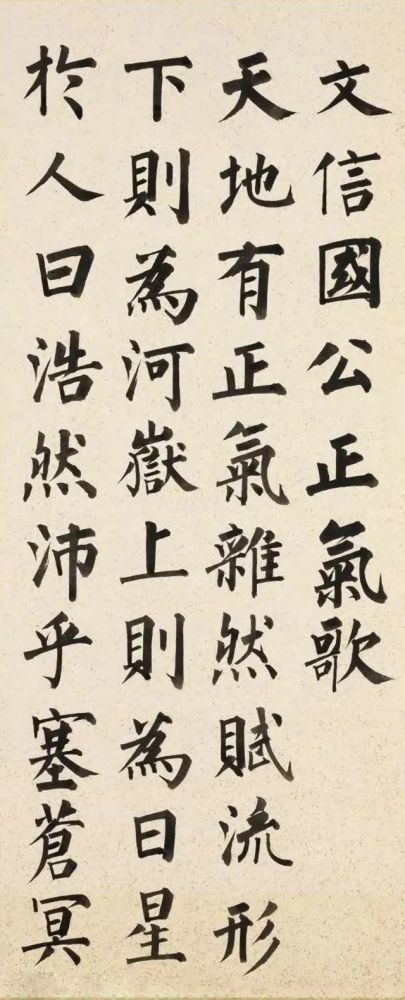 文信國公正氣歌
天地有正氣雜然賦流形
下則為河嶽上則為日星
於人曰浩然沛乎塞蒼冥